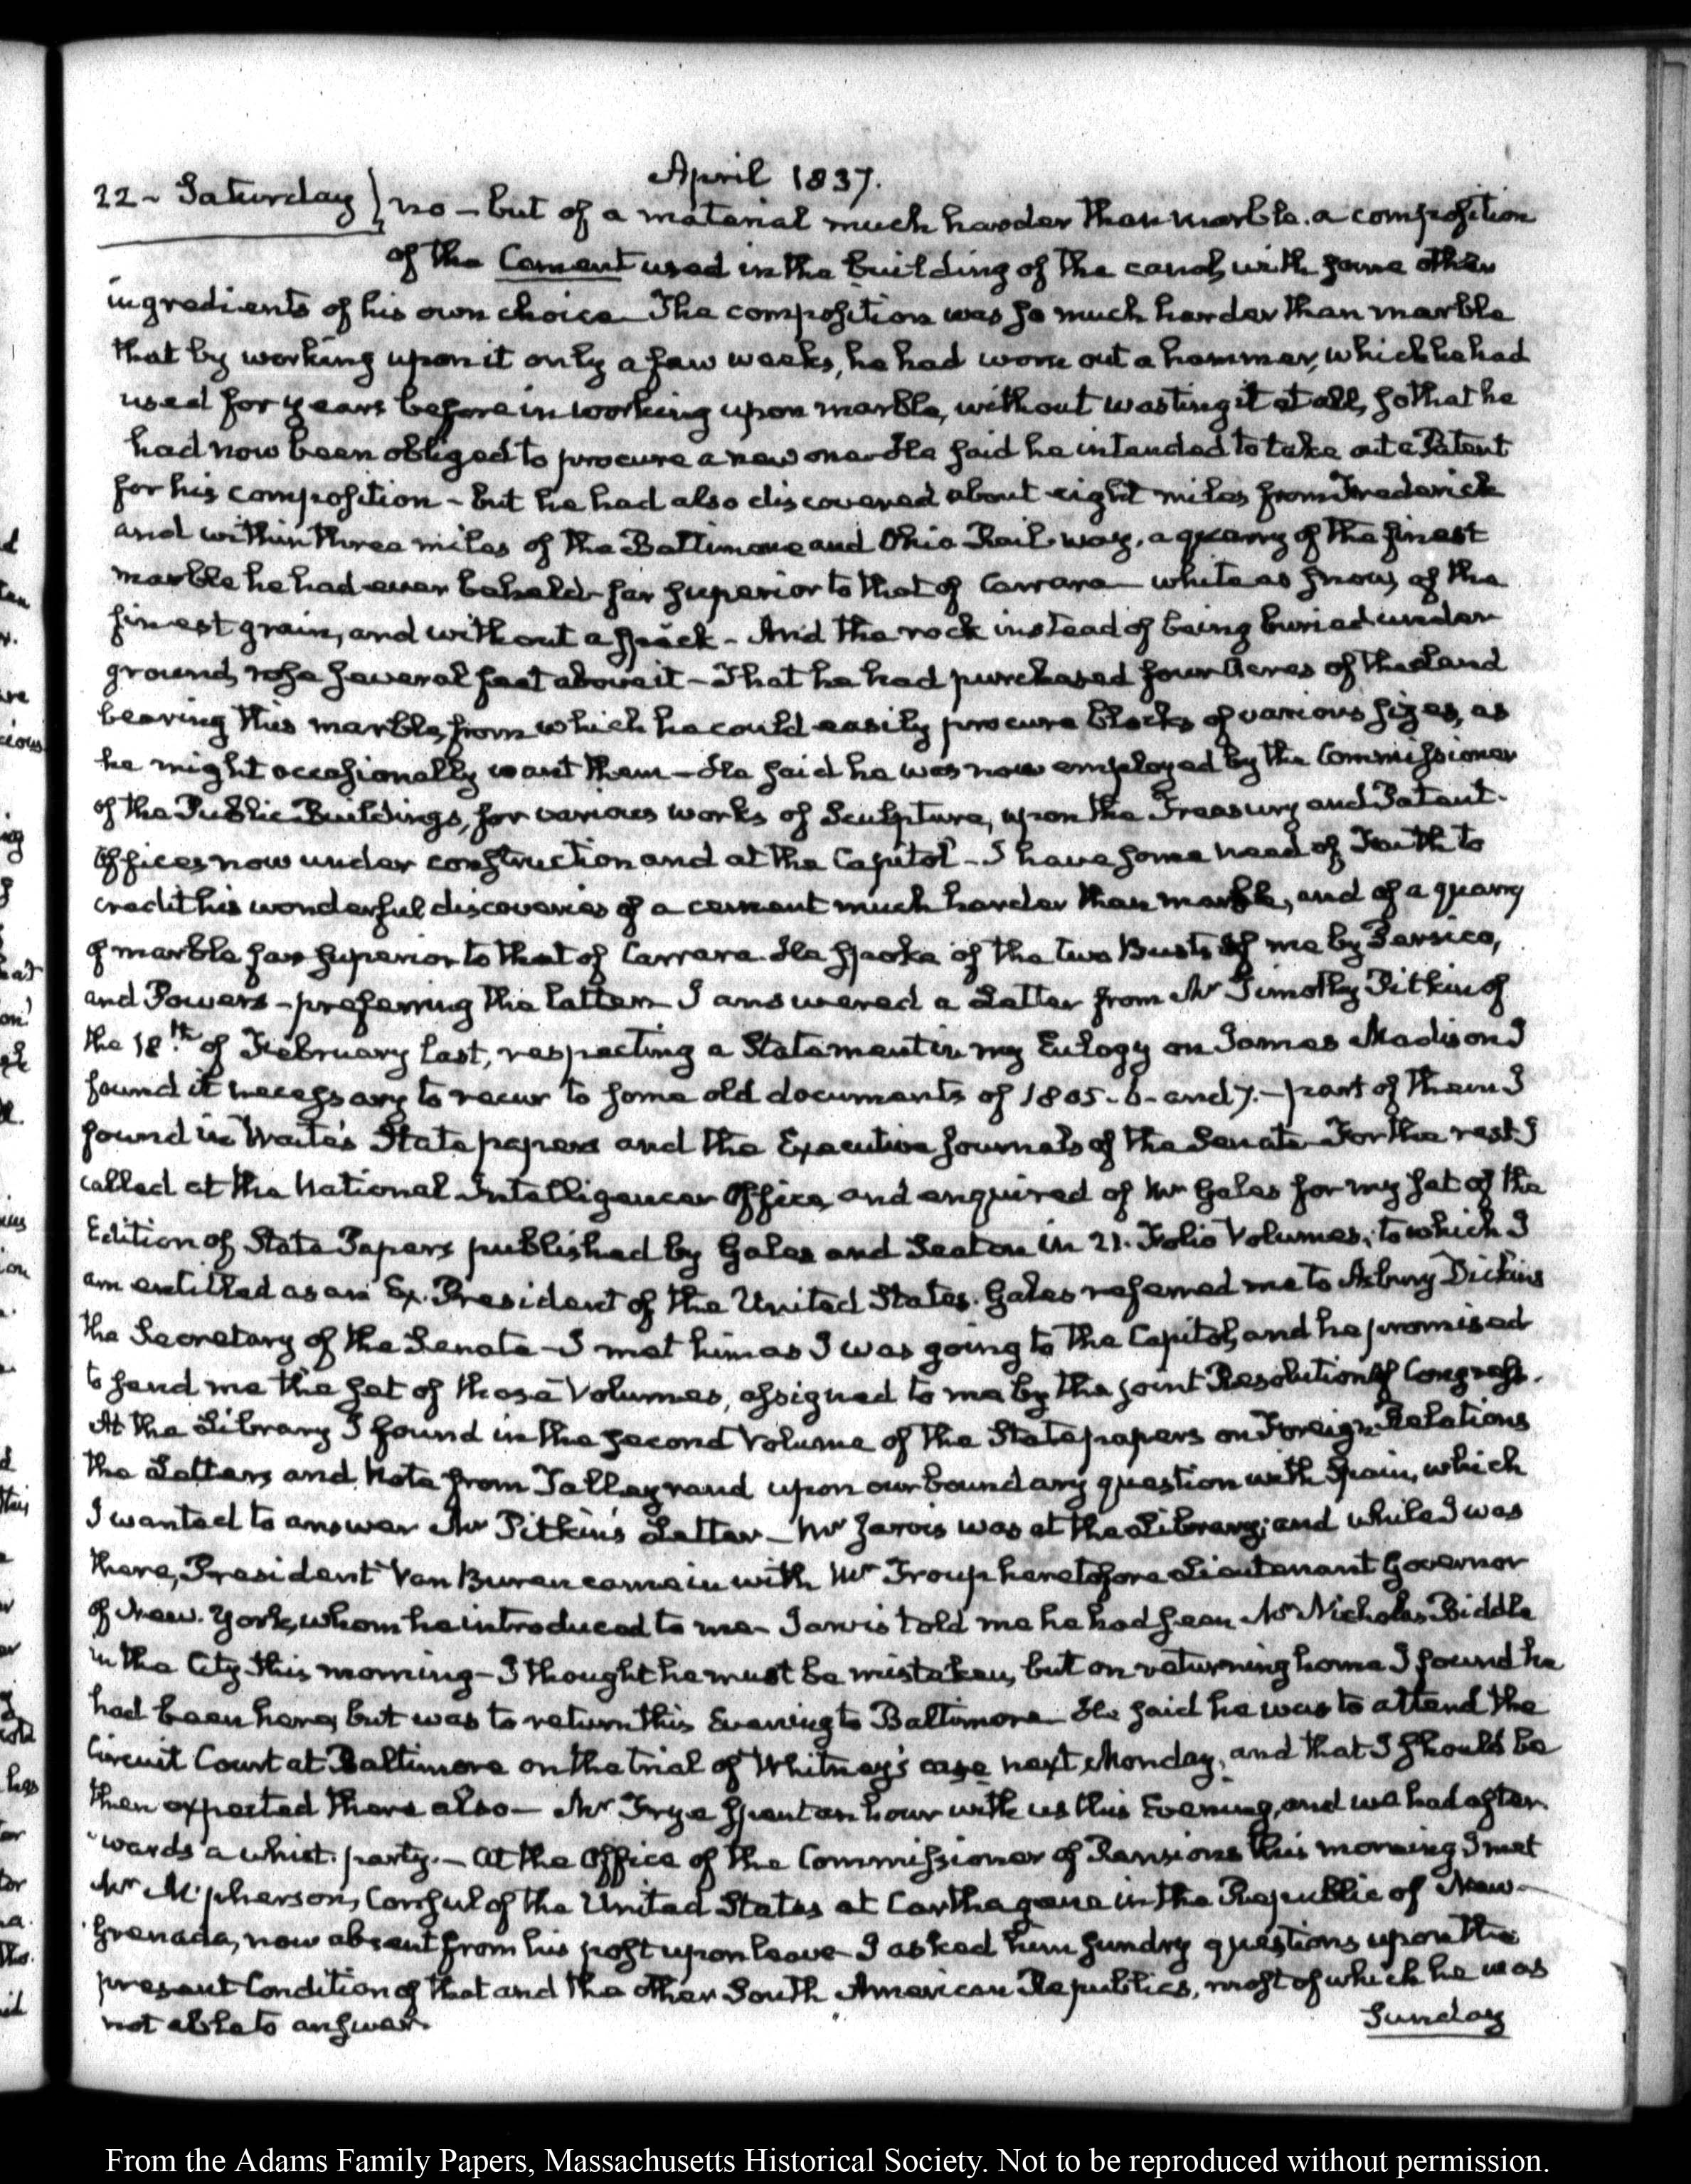 April 1837.
22 - Saturday } no - but of a material much harder than marble. a composition
of the Cement used in the building of the canal, with some other
ingredients of his own choice - The composition was so much harder than marble
that by working upon it only a few weeks, he had worn out a hammer, which he had
used for years before in working upon marble, without wasting it at all, so that he
had now been obliged to procure a new one - He said he intended to take out a Patent
for his composition - but he had also discovered about eight miles from Frederick
and within three miles of the Baltimore and Ohio Rail-way, a quarry of the finest
marble he had ever beheld - far superior to that of Carrara - white as snow, of the
finest grain, and without a speck - And the rock instead of being buried under
ground, rose several feet above it - That he had purchased four Acres of the Land
bearing this marble, from which he could easily procure blocks of various sizes, as
he might occasionally want them - He said he was now employed by the Commissioner
of the Public Buildings, for various works of Sculpture, upon the Treasury and Patent-
Offices now under construction and at the Capitol - I have some need of Faith to
credit his wonderful discoveries of a cement much harder than marble, and of a quarry
of marble far superior to that of Carrara. He spoke of the two Busts of me by Persico,
and Powers - preferring the latter - I answered a Letter from Mr Timothy Pitkin of
the 18th. of February last, respecting a Statement in my Eulogy on James Madison I
found it necessary to recur to some old documents of 1805-6- and 7. - part of them I
found in Waite's State papers and the Executive Journals of the Senate - For the rest I
called at the National Intelligencer Office, and enquired of Mr Gales for my set of the
Edition of State Papers published by Gales and Seaton in 21. Folio Volumes, to which I
am entitled as an Ex. President of the United States. Gales referred me to Asbury Dickins
the Secretary of the Senate - I met him as I was going to the Capitol, and he promised
to send me the set of those Volumes, assigned to me by the joint Resolution of Congress.
At the Library I found in the second Volume of the State papers on Foreign Relations
the Letters and Note from Talleyrand upon our boundary question with Spain, which
I wanted to answer Mr Pitkin's Letter - Mr Jarvis was at the Library; and while I was
there, President Van Buren came in with Mr Troup heretofore Lieutenant Governor
of New-York, whom he introduced to me - Jarvis told me he had seen Mr Nicholas Biddle
in the City this morning - I thought he must be mistaken, but on returning home I found he
had been here, but was to return this Evening to Baltimore - He said he was to attend the
Circuit Court at Baltimore on the trial of Whitney's case next Monday, and that I should be
then expected there also - Mr Frye spent an hour with us this Evening, and we had after-
wards a whist party. - At the Office of the Commissioner of Pensions this morning I met
Mr McPherson, Consul of the United States at Carthagena in the Republic of New-
Grenada, now absent from his post upon leave - I asked him sundry questions upon the
present Condition of that and the other South American Republics, most of which he was
not able to answer.
Sunday
From the Adams Family Papers, Massachusetts Historical Society. Not to be reproduced without permission.